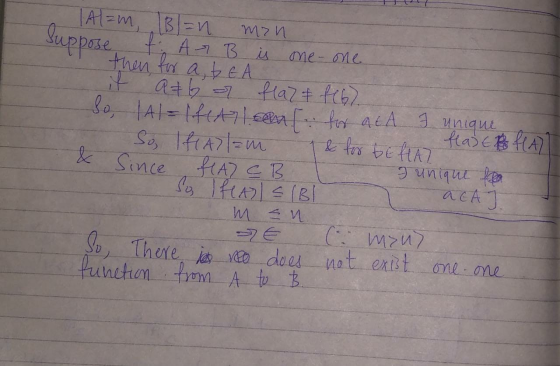 |A|=m, |B|=n m>n
Suppose f: A→B is one-one
then for a,b∈A
if a≠b ⇒ f(a) ≠ f(b).
So, |A|=|f(A)| [∵ for a∈A ∃ unique
f(a)∈ f(A)
So, |f(A)|=m & for b∈f(A)
& Since f(A) ⊆ B ∃ unique
So |f(A)| ≤ |B| a∈A].
m ≤ n
⇒∈ (∵ m>n)
So, There does not exist one-one
function from A to B